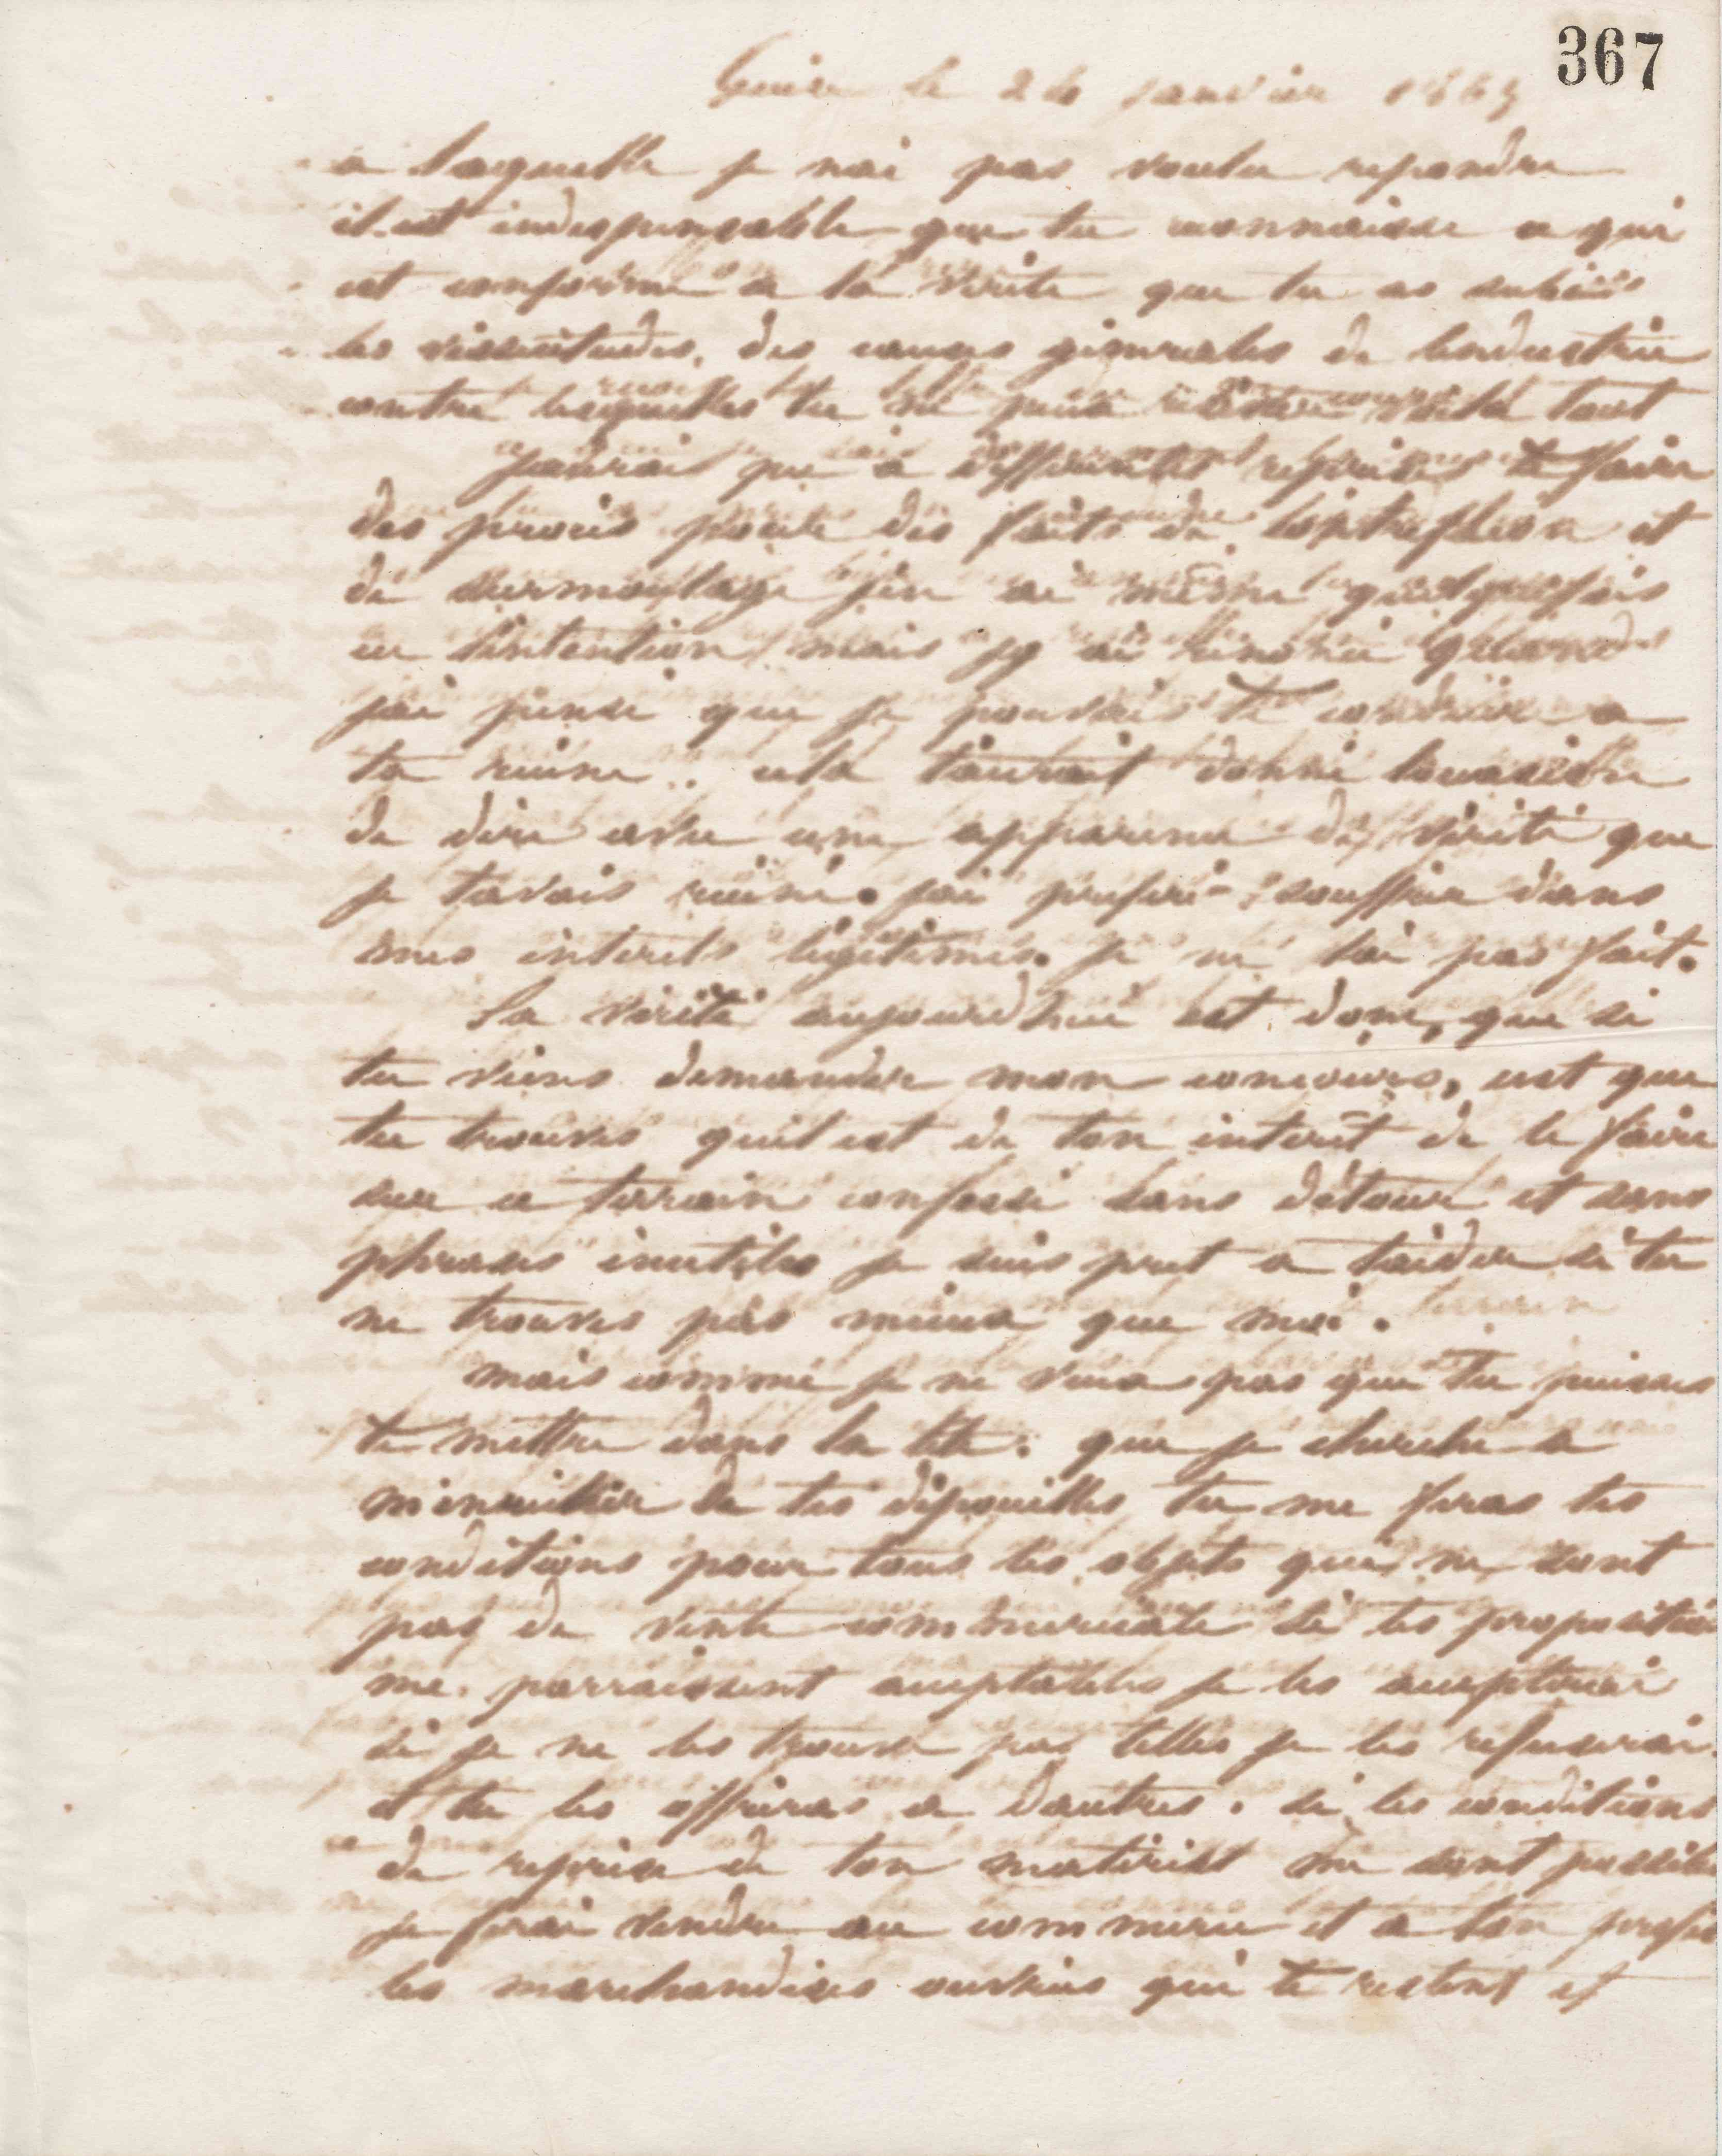 367
Guise le 26 janvier 1863
a laquelle je nai pas voulu repondre
il est indispensable que tu reconnaisse ce qui
est conforme a la verite que tu as subi
les vissicitudes des causes generales de lindustrie
contre lesquelles tu ne peux voila tout
jaurais pu a differentes reprises te faire
des procès pour des faits de contrefaçon et
de surmoulage jen ai même quelquefois
eu lintention mais jy ai renoncé quand
jai pensé que je pouvais te conduire a
ta ruine. cela taurait donné loccasion
de dire avec une apparence de vérité que
je tavais ruiné. jai preferé souffrir dans
mes interets légitimes. je ne lai pas fait.
La vérité aujourdhui est donc, que si
tu viens demander mon concours, cest que
tu trouves quil est de ton interêt de le faire
sur ce terrain confessé sans détour et sans
phrases inutiles je suis pret a taider si tu
ne trouves pas mieux que moi.
mais comme je ne veux pas que tu puisses
te mettre dans la tête. que je cherche a
menrichir de tes dépouilles tu me feras tes
conditions pour tous les objets qui ne sont
pas de vente commerciale si tes proposition
me parraissent acceptables je les accepterai
si je ne les trouve pas telles je les refuserai.
et tu les offriras a dautres. si les conditions
de reprise de ton matériel me sont possibles
je ferai vendre au commerce et a ton profit
les marchandises ouvrées qui te restent et